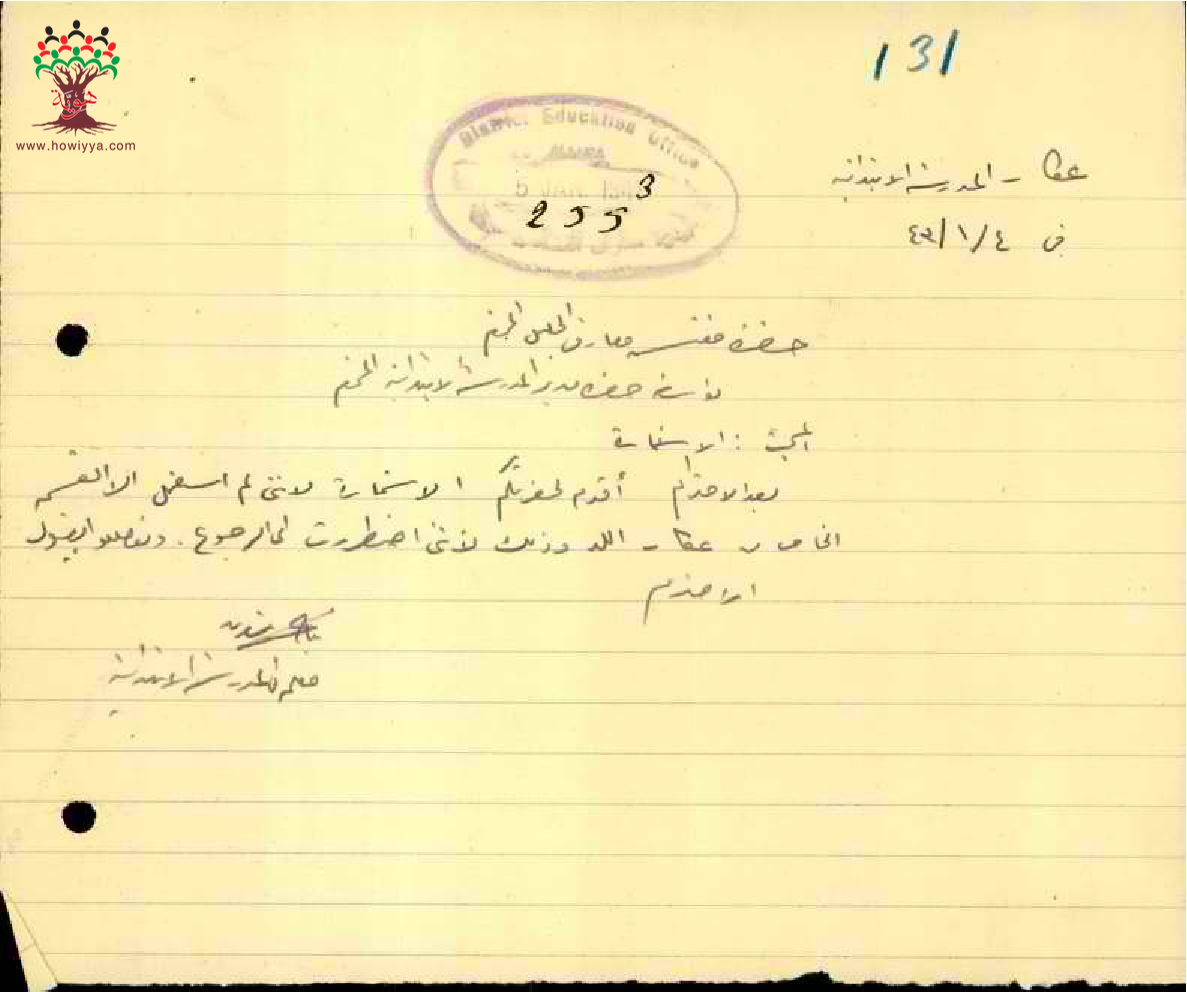 131
هوية
www.howiyya.com
District Education Office
5 JAN. 1943
255
عكا - المدرسة الابتدائية
في ٤/١/٤٣
حضرة مفتش معارف الجليل المحترم
بواسطة حضرة مدير المدرسة الابتدائية المحترم
المبحث : الاستمارة
بعد الاحترام أقدم لحضرتكم الاستمارة لانني لم استعمل الا القسم
الخاص من عكا - اللد وذلك لأنني اضطررت الى الرجوع. وتفضلوا بقبول
الاحترام
معلم في المدرسة الابتدائية